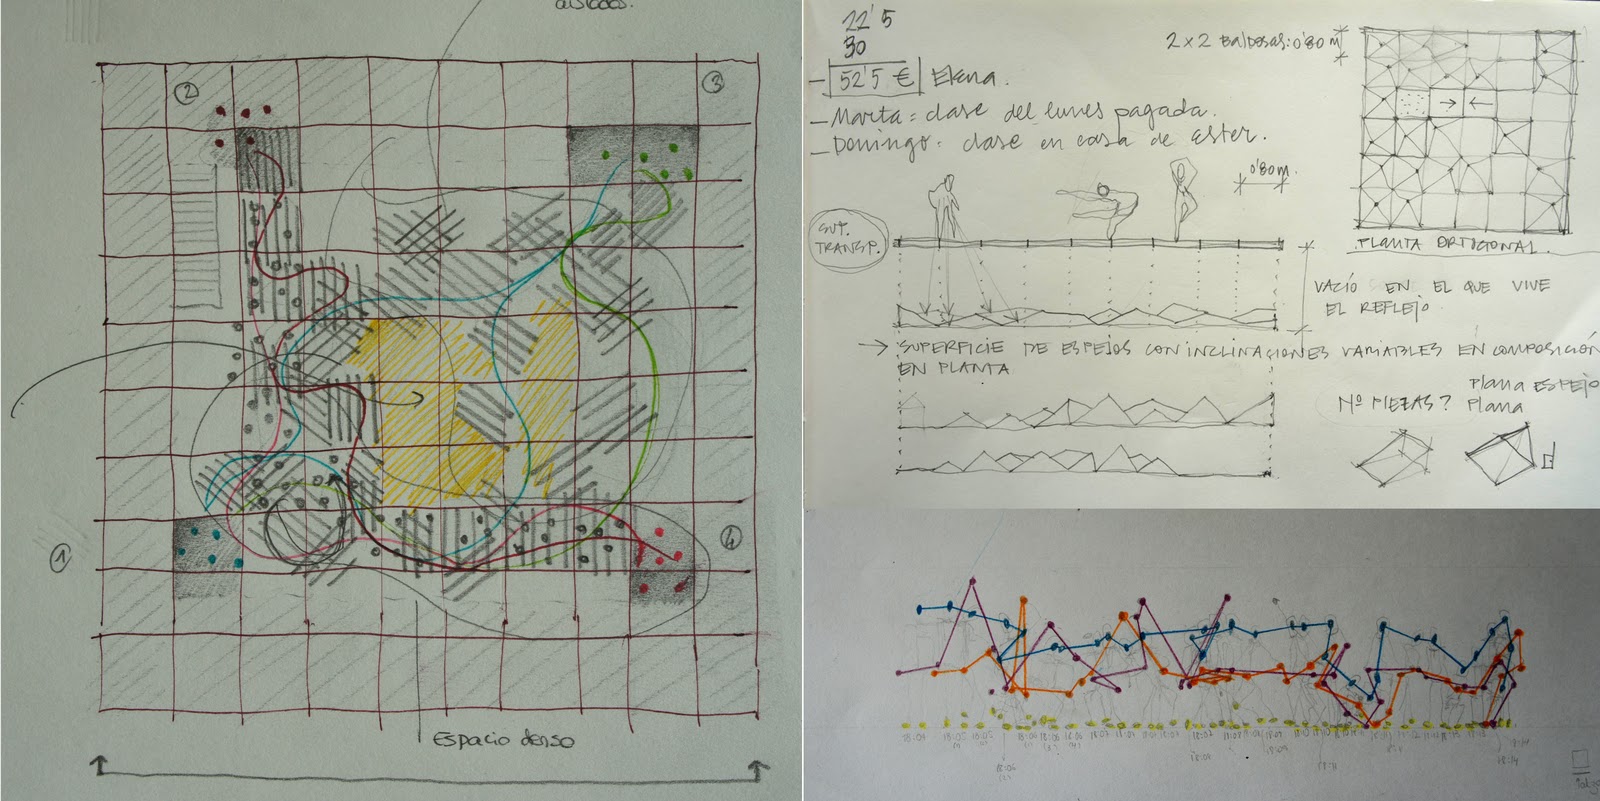 aislados.
2
3
1
4
Espacio denso
22'5
30
52'5 € Elena.
- Marta = clase del lunes pagada.
- Domingo = clase en casa de Ester.
2x2 BALDOSAS: 0'80 m
0'80m.
SUP.
TRANSP.
PLANTA ORTOGONAL
VACÍO EN EL QUE VIVE
EL REFLEJO
→ SUPERFICIE DE ESPEJOS CON INCLINACIONES VARIABLES EN COMPOSICIÓN
EN PLANTA
Nº PIEZAS?
Plana ESPEJO
Plana
18:04
18:06
18:11
18:14